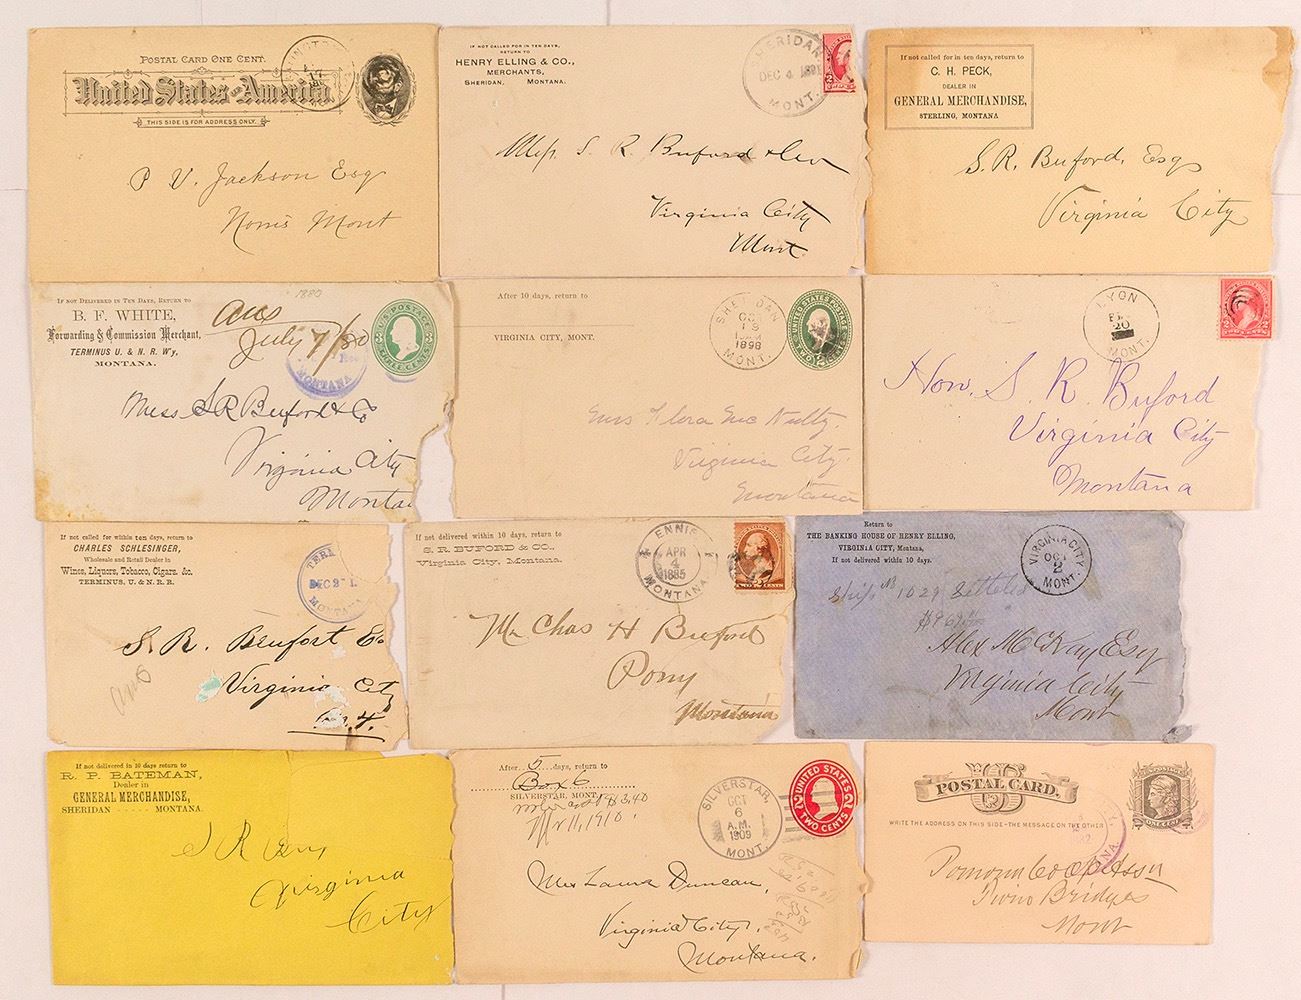 POSTAL CARD ONE CENT.
United States of America
THIS SIDE IS FOR ADDRESS ONLY.
17
P V. Jackson Esq
Norris Mont
IF NOT CALLED FOR IN TEN DAYS,
RETURN TO
HENRY ELLING & CO.,
MERCHANTS,
SHERIDAN, MONTANA.
SHERIDAN
DEC 4 1891
MONT.
2
S. R. Buford & Co
Virginia City
Mont
If not called for in ten days, return to
C. H. PECK,
DEALER IN
GENERAL MERCHANDISE,
STERLING, MONTANA
S. R. Buford, Esq
Virginia City
1880
IF NOT DELIVERED IN TEN DAYS, RETURN TO
B. F. WHITE,
Forwarding & Commission Merchant,
TERMINUS U. & N. R. W'y,
MONTANA.
ans
July 7/80
U.S. POSTAGE
THREE CENTS
MONTANA
Mess S R Buford & Co
Virginia City
Montana
After 10 days, return to
VIRGINIA CITY, MONT.
SHERIDAN
19
1898
MONT.
UNITED STATES POSTAGE
Miss Flora McNulty.
Virginia City.
Montana
LYON
20
MONT.
2 2
Hon. S. R. Buford
Virginia City
Montana
If not called for within ten days, return to
CHARLES SCHLESINGER,
Wholesale and Retail Dealer in
Wines, Liquors, Tobacco, Cigars, &c.
TERMINUS, U. & N. R. R.
MONTANA
S. R. Beufort Co
Virginia City
M. T.
ans
If not delivered within 10 days, return to
S. R. BUFORD & CO.,
Virginia City, Montana.
ENNIS
APR
4
1885
MONTANA
TWO CENTS
Mr Chas H Buford
Pony
Montana
Return to
THE BANKING HOUSE OF HENRY ELLING,
VIRGINIA CITY, Montana,
If not delivered within 10 days.
VIRGINIA CITY
OCT
2
MONT.
1029 Settled
Alex McKay Esq
Virginia City
Mont
If not delivered in 10 days return to
R. P. BATEMAN,
Dealer in
GENERAL MERCHANDISE,
SHERIDAN - - - - - MONTANA.
S R
Virginia
City
After 5 days, return to
Box 6
SILVERSTAR, MONT.
11, 1910.
SILVERSTAR,
OCT
6
A.M.
1909
MONT.
UNITED STATES
2 2
TWO CENTS
Laura Duncan,
Virginia City,
Montana.
US
POSTAL CARD.
WRITE THE ADDRESS ON THIS SIDE - THE MESSAGE ON THE OTHER
ONE CENT
Twin Bridges
Mont